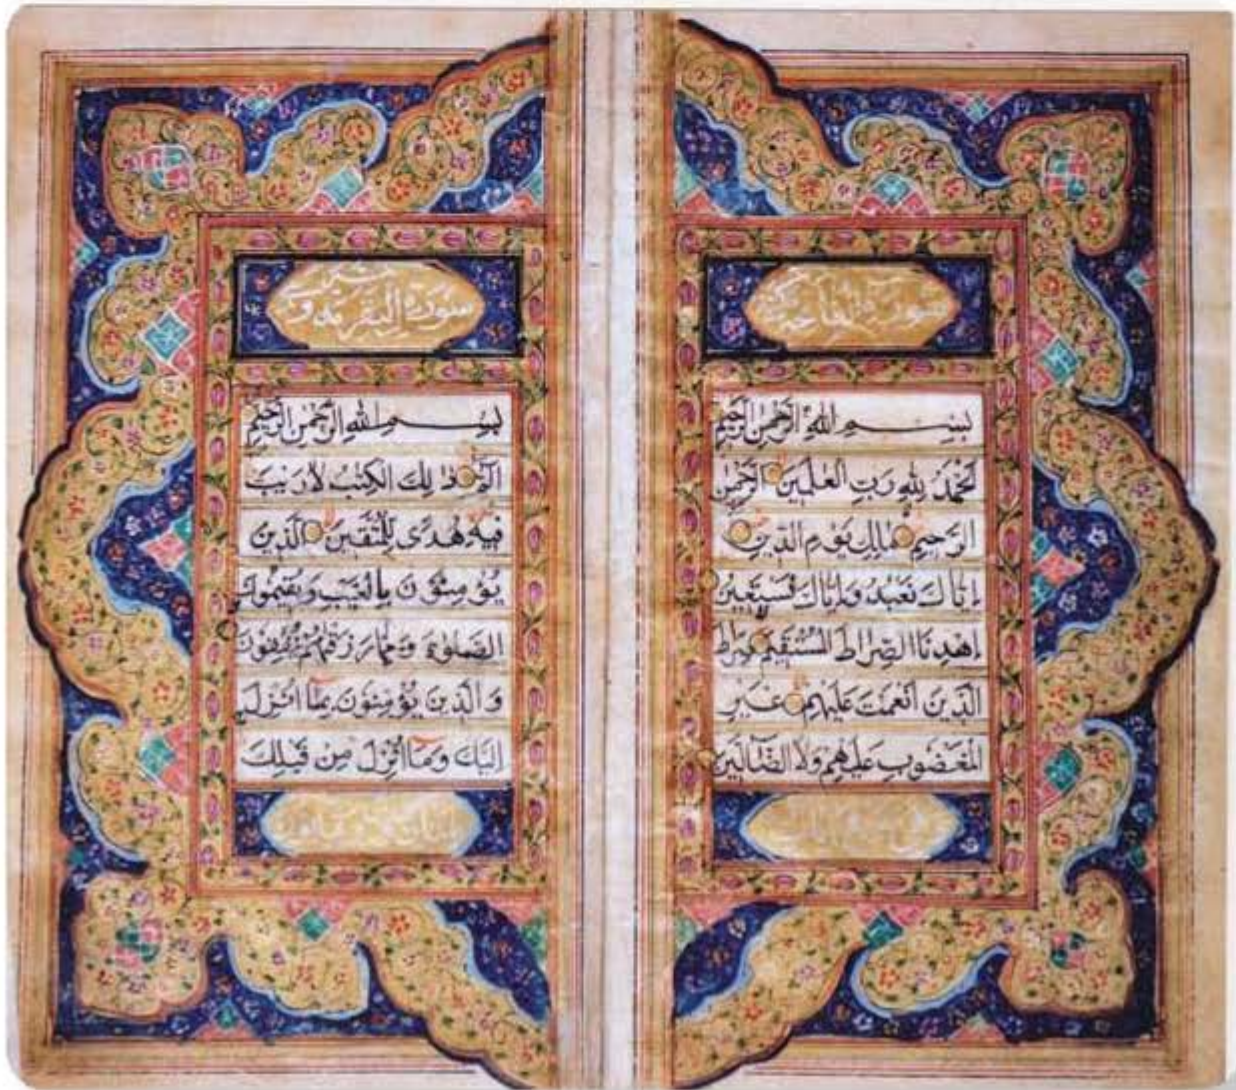 سورة الفاتحة
بِسْمِ اللهِ الرَّحْمٰنِ الرَّحِيْمِ
اَلْحَمْدُ لِلّٰهِ رَبِّ الْعٰلَمِيْنَ الرَّحْمٰنِ
الرَّحِيْمِ مٰلِكِ يَوْمِ الدِّيْنِ
اِيَّاكَ نَعْبُدُ وَاِيَّاكَ نَسْتَعِيْنُ
اِهْدِنَا الصِّرَاطَ الْمُسْتَقِيْمَ صِرَاطَ
الَّذِيْنَ اَنْعَمْتَ عَلَيْهِمْ غَيْرِ
الْمَغْضُوْبِ عَلَيْهِمْ وَلَا الضَّآلِّيْنَ
سورة البقرة
بِسْمِ اللهِ الرَّحْمٰنِ الرَّحِيْمِ
الٓمٓ ذٰلِكَ الْكِتٰبُ لَا رَيْبَ
فِيْهِ هُدًى لِلْمُتَّقِيْنَ الَّذِيْنَ
يُؤْمِنُوْنَ بِالْغَيْبِ وَيُقِيْمُوْنَ
الصَّلٰوةَ وَمِمَّا رَزَقْنٰهُمْ يُنْفِقُوْنَ
وَالَّذِيْنَ يُؤْمِنُوْنَ بِمَآ اُنْزِلَ
اِلَيْكَ وَمَآ اُنْزِلَ مِنْ قَبْلِكَ